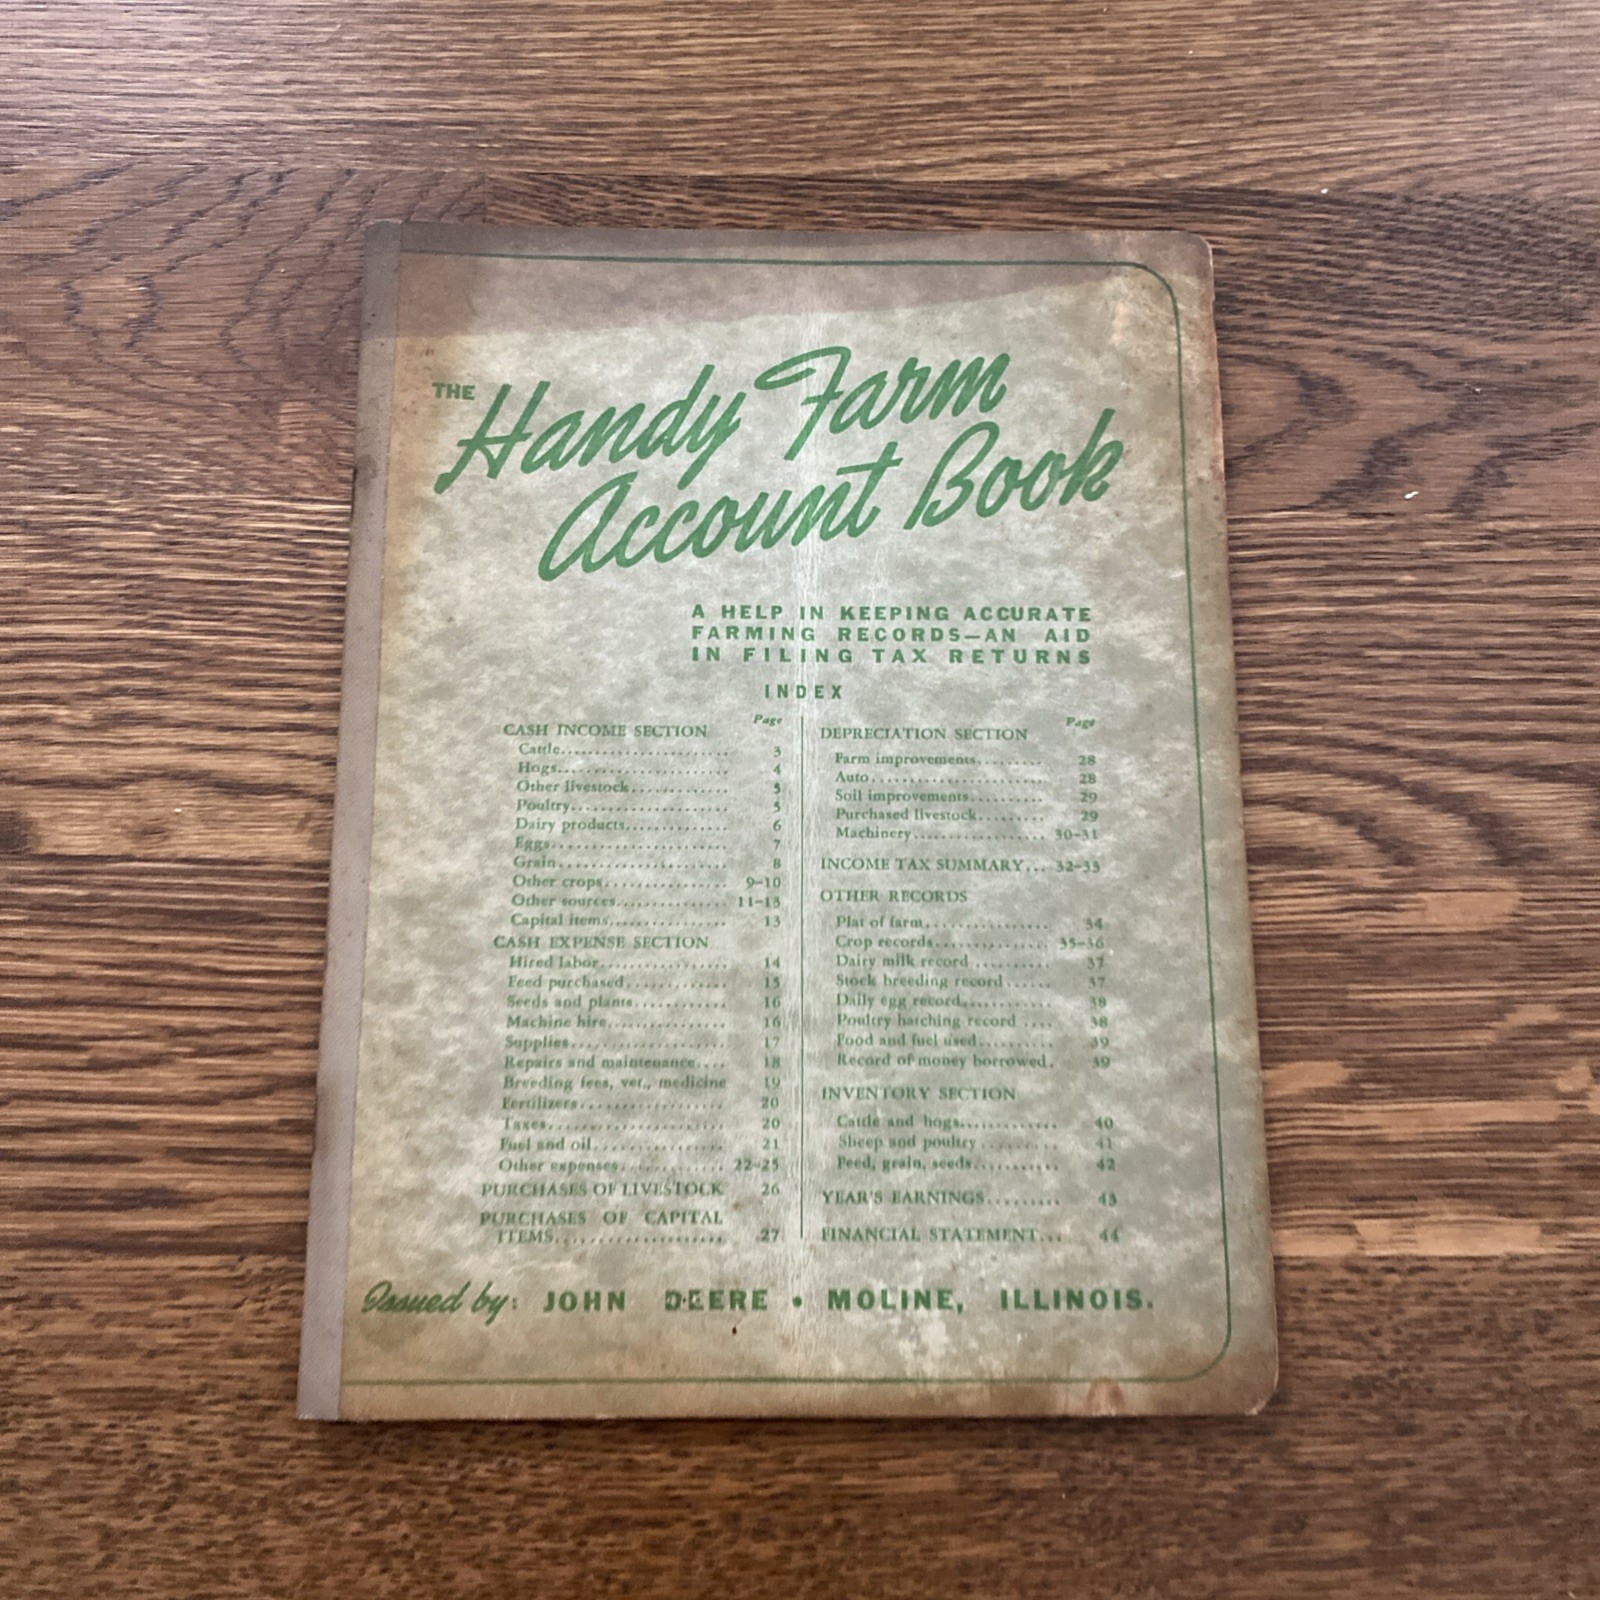 THE Handy Farm
Account Book
A HELP IN KEEPING ACCURATE
FARMING RECORDS—AN AID
IN FILING TAX RETURNS
INDEX
Page
CASH INCOME SECTION
Cattle........................ 3
Hogs........................ 4
Other livestock.............. 5
Poultry...................... 5
Dairy products.............. 6
Eggs........................ 7
Grain........................ 8
Other crops................ 9–10
Other sources.............. 11–13
Capital items................ 13
CASH EXPENSE SECTION
Hired labor.................. 14
Feed purchased.............. 15
Seeds and plants............ 16
Machine hire................ 16
Supplies.................... 17
Repairs and maintenance.... 18
Breeding fees, vet., medicine 19
Fertilizers.................. 20
Taxes........................ 20
Fuel and oil................ 21
Other expenses............ 22–25
PURCHASES OF LIVESTOCK 26
PURCHASES OF CAPITAL
ITEMS...................... 27
Page
DEPRECIATION SECTION
Farm improvements......... 28
Auto........................ 28
Soil improvements.......... 29
Purchased livestock......... 29
Machinery.................. 30–31
INCOME TAX SUMMARY... 32–33
OTHER RECORDS
Plat of farm................ 34
Crop records.............. 35–36
Dairy milk record .......... 37
Stock breeding record ...... 37
Daily egg record............ 38
Poultry hatching record .... 38
Food and fuel used.......... 39
Record of money borrowed. 39
INVENTORY SECTION
Cattle and hogs............. 40
Sheep and poultry ......... 41
Feed, grain, seeds........... 42
YEAR'S EARNINGS......... 43
FINANCIAL STATEMENT... 44
Issued by: JOHN DEERE • MOLINE, ILLINOIS.